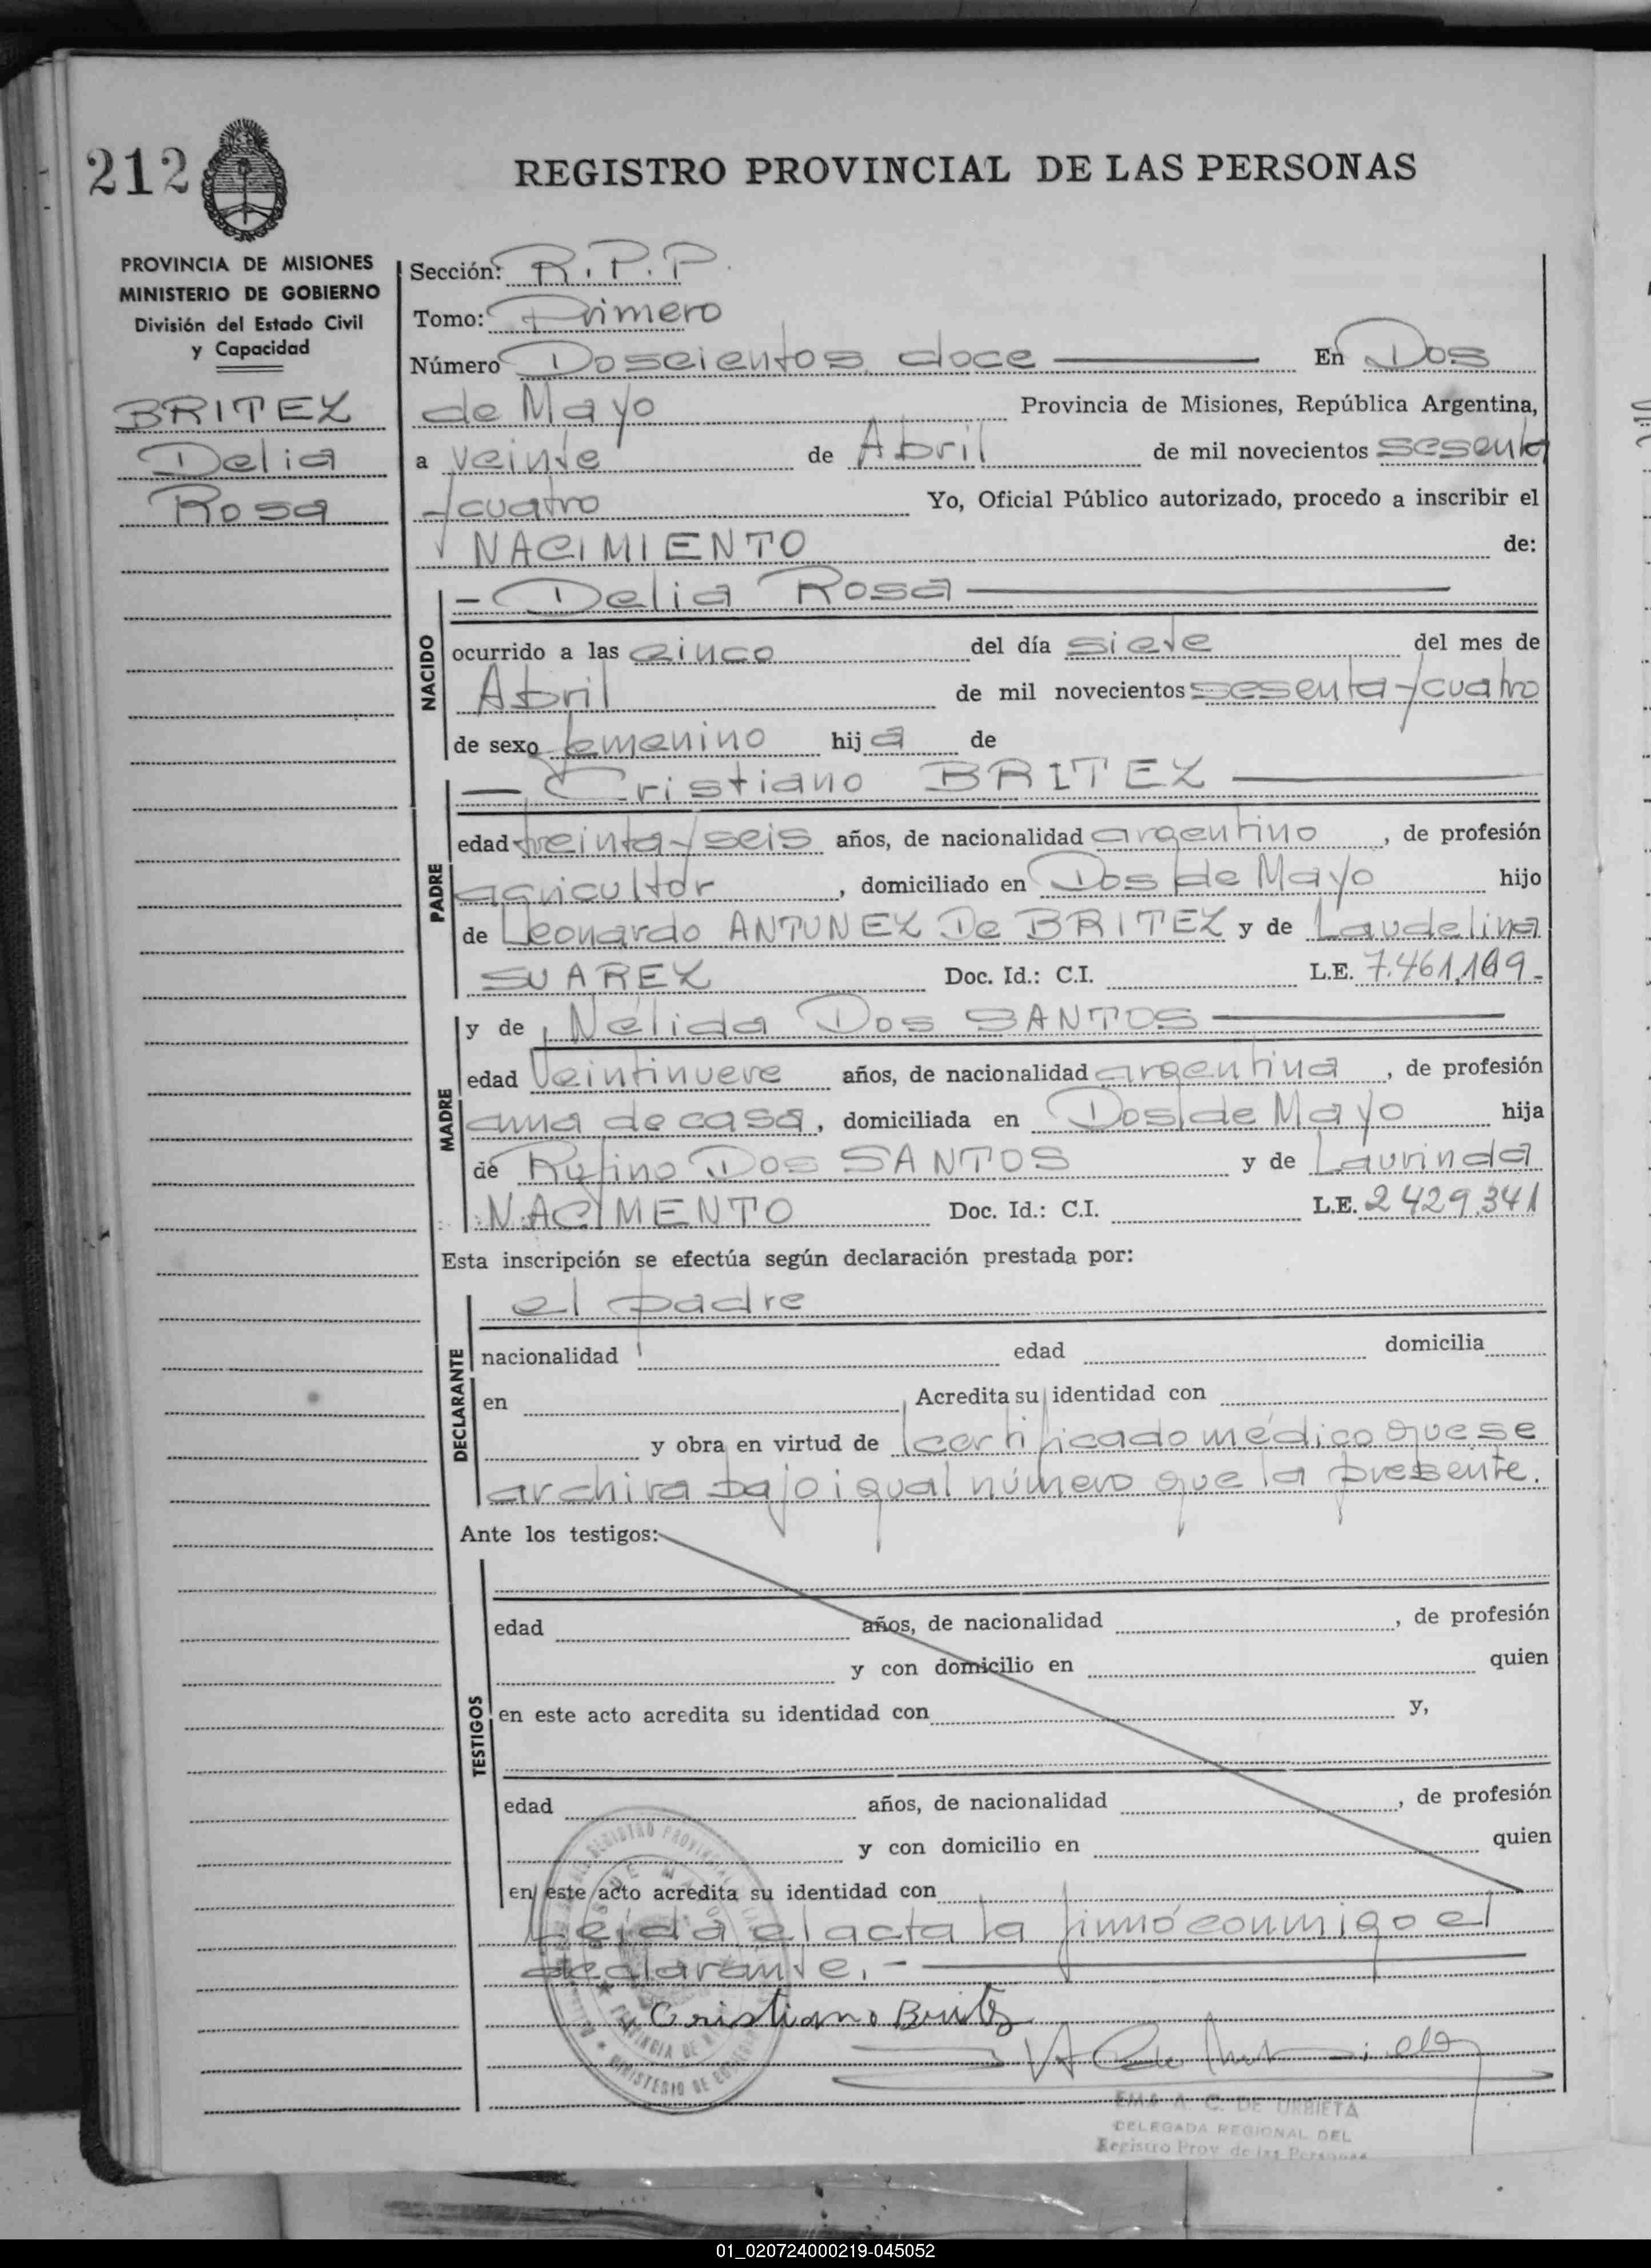 212
REGISTRO PROVINCIAL DE LAS PERSONAS
PROVINCIA DE MISIONES
MINISTERIO DE GOBIERNO
División del Estado Civil
y Capacidad
BRITEZ
Delia
Rosa
Sección: R.P.P.
Tomo: Primero
Número Doscientos doce En Dos
de Mayo Provincia de Misiones, República Argentina,
a veinte de Abril de mil novecientos sesenta
y cuatro Yo, Oficial Público autorizado, procedo a inscribir el
NACIMIENTO de:
NACIDO
- Delia Rosa
ocurrido a las cinco del día siete del mes de
Abril de mil novecientos sesenta y cuatro
de sexo femenino hija de
PADRE
- Cristiano BRITEZ
edad treinta y seis años, de nacionalidad argentino, de profesión
agricultor, domiciliado en Dos de Mayo hijo
de Leonardo ANTUNEZ De BRITEZ y de Laudelina
SUAREZ Doc. Id.: C.I. L.E. 7.461.169.-
MADRE
y de Nélida Dos SANTOS
edad Veintinueve años, de nacionalidad argentina, de profesión
ama de casa, domiciliada en Dos de Mayo hija
de Rufino Dos SANTOS y de Laurinda
NACIMENTO Doc. Id.: C.I. L.E. 2429.341
Esta inscripción se efectúa según declaración prestada por:
DECLARANTE
el padre
nacionalidad edad domicilia
en Acredita su identidad con
y obra en virtud de certificado médico que se
archiva bajo igual número que la presente.
Ante los testigos:
TESTIGOS
edad años, de nacionalidad , de profesión
y con domicilio en quien
en este acto acredita su identidad con y,
edad años, de nacionalidad , de profesión
y con domicilio en quien
en este acto acredita su identidad con
Leída el acta la firmó conmigo el
declarante.-
Cristiano Britez
EMA A. C. DE URBIETA
DELEGADA REGIONAL DEL
Registro Prov. de las Personas
01_020724000219-045052